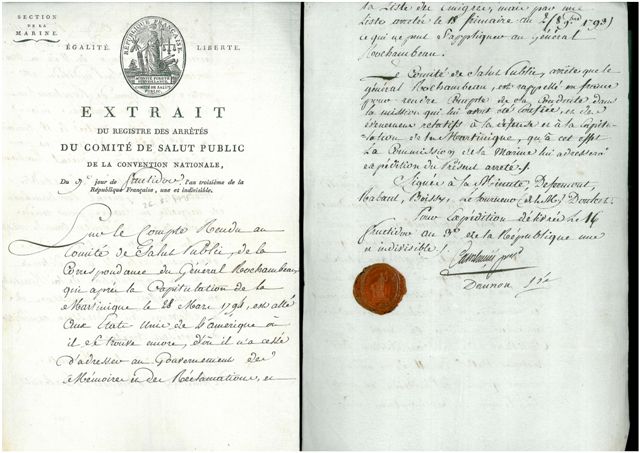 SECTION
DE LA
MARINE.
ÉGALITÉ.
LIBERTÉ.
RÉPUBLIQUE FRANÇAISE
COMITÉ DE SALUT
PUBLIC.
EXTRAIT
DU REGISTRE DES ARRÊTÉS
DU COMITÉ DE SALUT PUBLIC
DE LA CONVENTION NATIONALE,
Du 9e jour de fructidor l'an troisième de la
République Française, une et indivisible.
Sur le Compte Rendu au
Comité de Salut Public, de la
Correspondance du Général Rochambeau,
qui après la Capitulation de la
Martinique le 28 Mars 1794, est allé
aux Etats Unis de l'amérique où
il se trouve encore, d'où il n'a cessé
d'adresser au Gouvernement des
Mémoires et des Réclamations, et
la Liste des Emigrés, mais par une
Liste arrêtée le 18 frimaire an 2 /8 1793
ce qui ne peut s'appliquer au général
Rochambeau.
Le Comité de Salut Public, arrête que le
général Rochambeau, est rappellé en france
pour rendre Compte de sa Conduite dans
la mission qui lui avait été confiée, et des
évènemens relatifs à la défense et à la Capitu-
-lation de la Martinique, qu'à cet effet
La Commission de la Marine lui adressera
expédition du présent arrêté./.
Signés à la Minute, Defermont,
Rabaut, Boissy, Le tourneur de la M. Doulcet
Pour Expédition délivrée le 14
fructidor an 3e de la République une
et indivisible./
Daunou